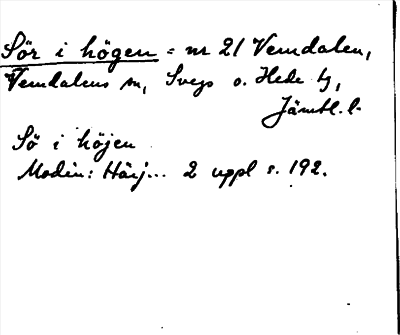 Sör i högen = nr 21 Vemdalen,
Vemdalens sn, Svegs o. Hede tg,
Jämtl. l.
Sö i höjen
Modin: Härj... 2 uppl s. 192.